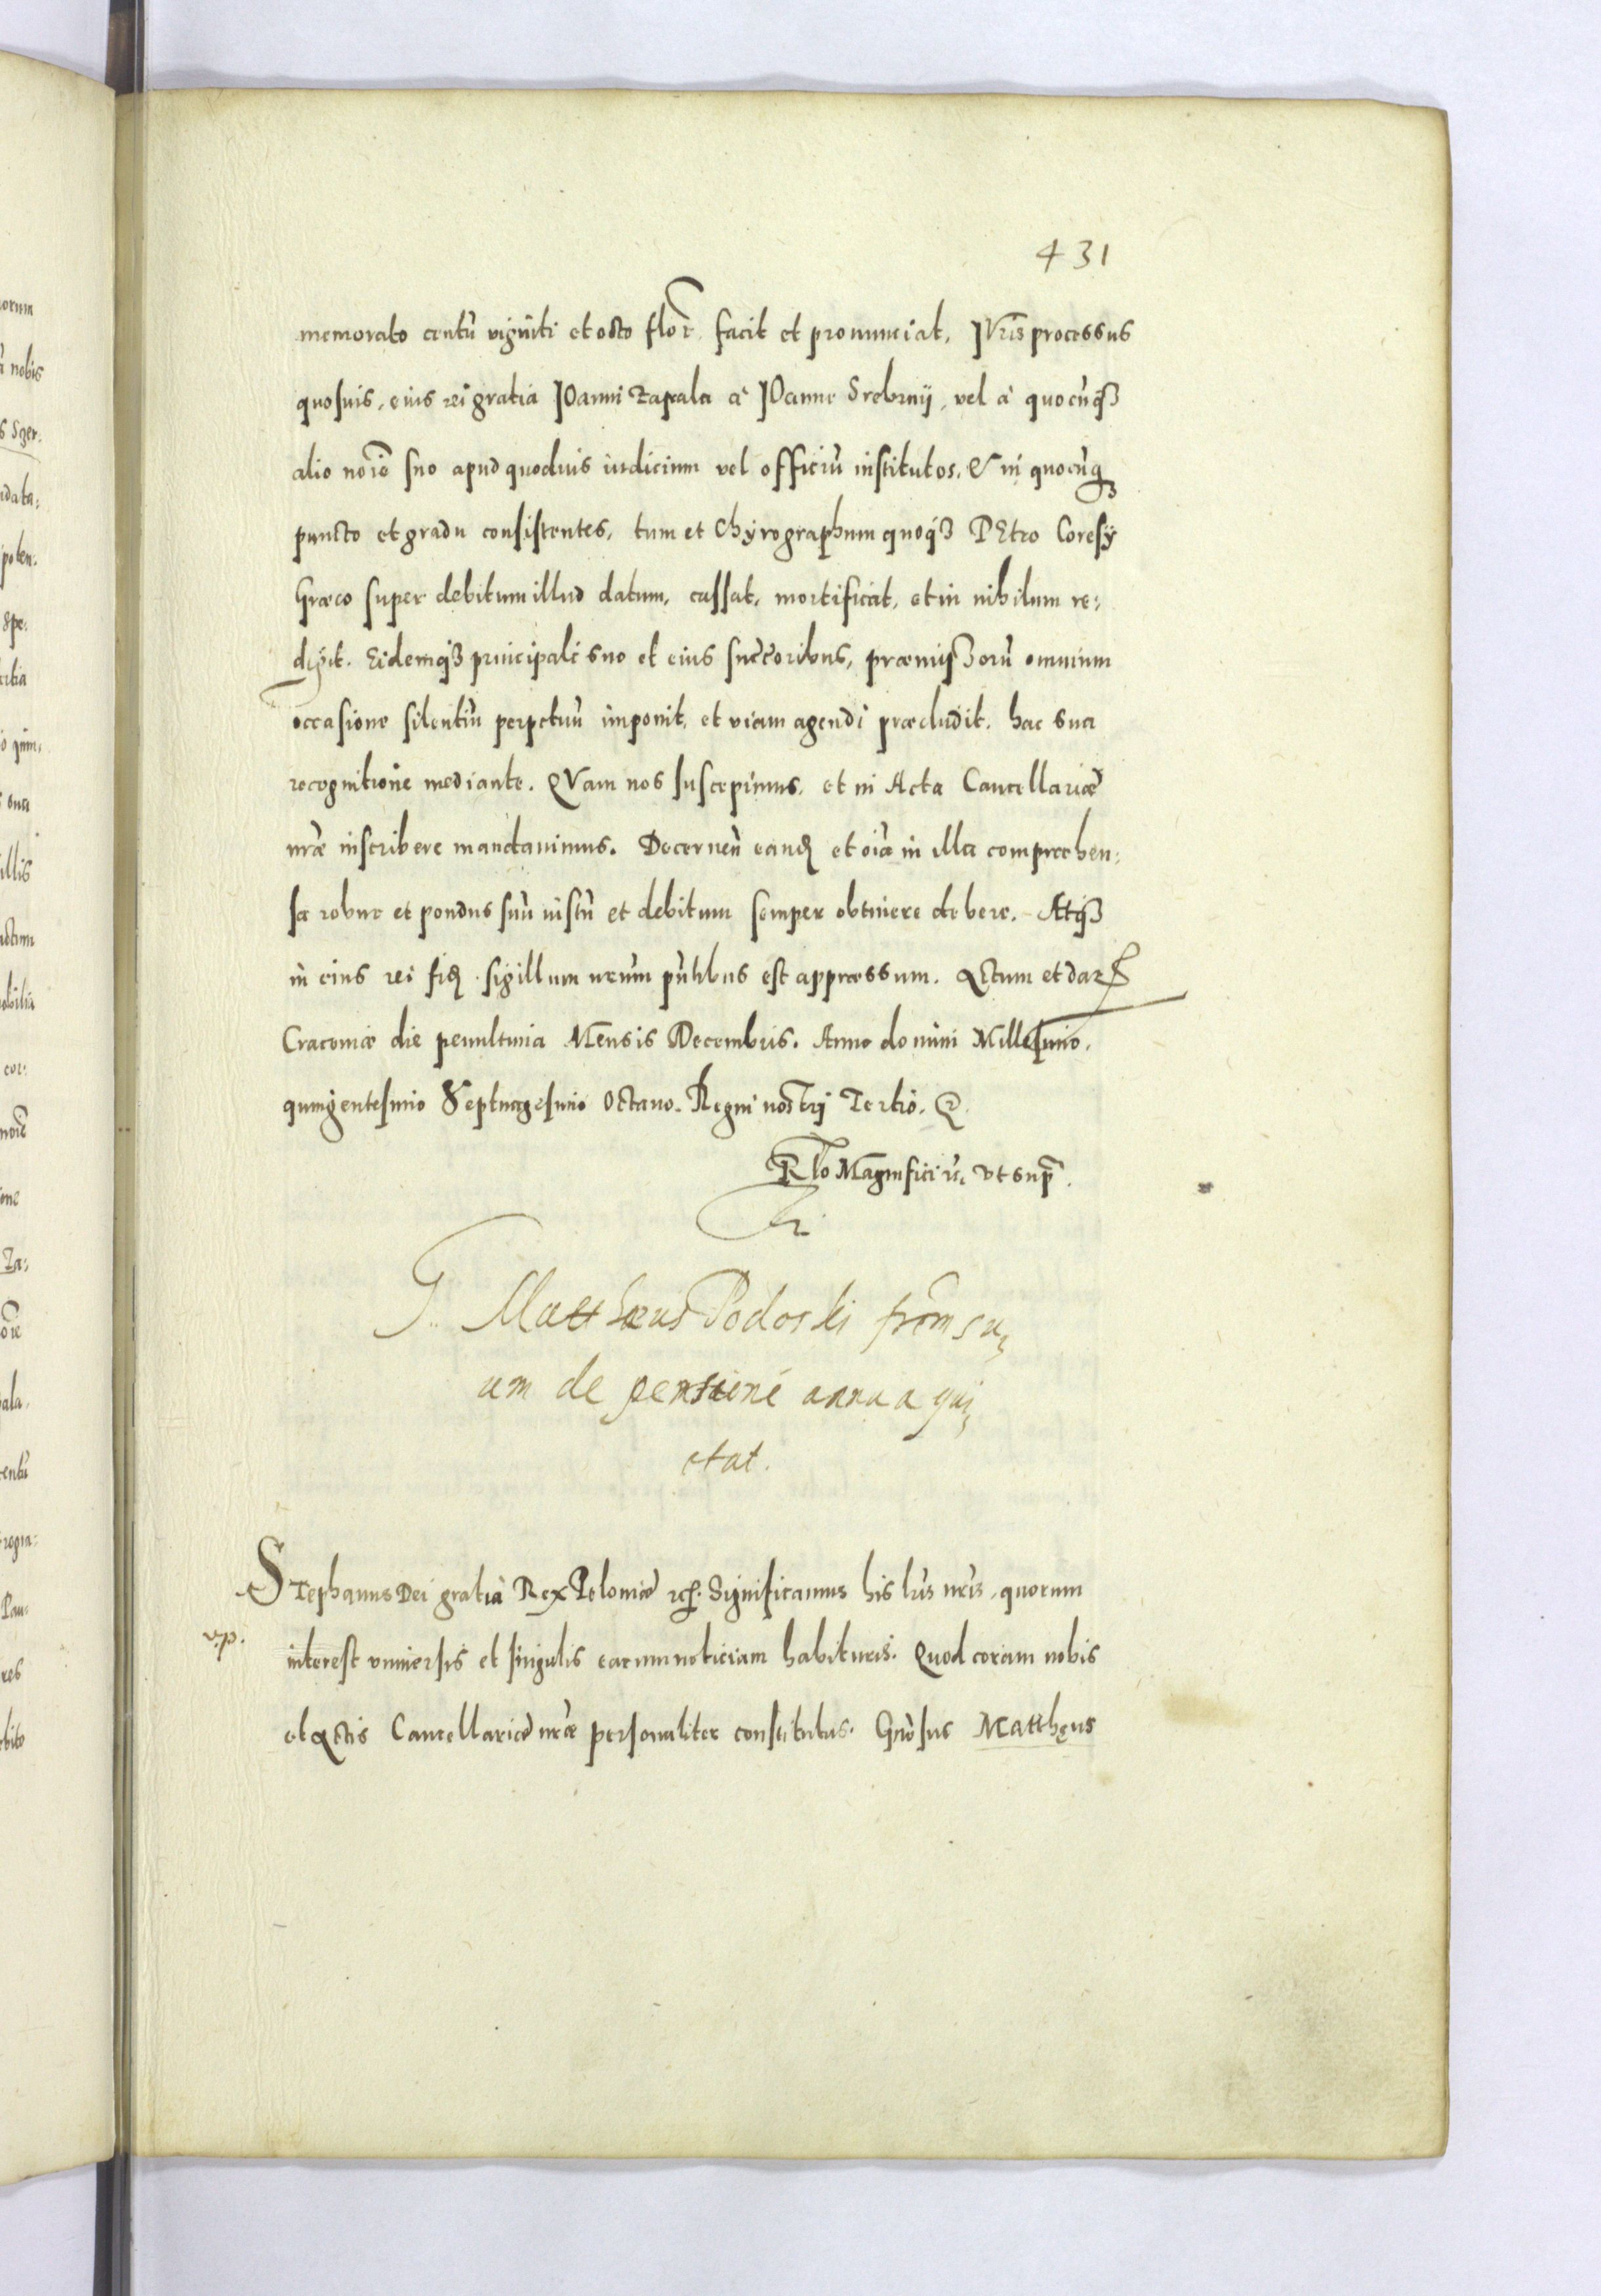 431
memorato centũ viginti et octo flor̃ facit et pronunciat. IVris processus
quosuis, eius rei gratia IOanni Zapala à IOanne Srebrnÿ, vel à quocũq3
alio noĩe suo apud quoduis iudicium vel officiũ institutos, & in quocũq3
puncto et gradu consistentes, tum et Chyrographum quoq3 PEtro Coresÿ
Græco super debitum illud datum, cassat, mortificat, et in nihilum re:
digit. Eidemq3 principali suo et eius succ̃oribus, præmiss3orũ omnium
occasione silentiũ perpetuũ imponit, et viam agendi præcludit. hac sua
recognitione mediante. QVam nos suscepimus, et in Acta Cancellariæ
nr̃æ inscribere mandauimus. Decernen̄ eand et oĩa in illa comprehen:
sa robur et pondus suũ iustũ et debitum semper obtinere debere. Atq3
in eius rei fid sigillum nr̃um pn̄tibus est appressum. Actum et dat
Cracouiæ die penultima MEnsis Decembris. Anno domini Millesimo.
quingentesimo Septuagesimo Octauo. Regni nostri Tertio.
Rl̃o Magnifici ut supr̃.
G. Matthæus Podoski frẽm su,
um de pensione annua qui,
ctat.
STephanus Dei gratia REx Poloniæ Significamus his lr̃is nr̃is, quorum
v.p.
interest vniuersis et singulis earum noticiam habituris. Quod coram nobis
et Actis Cancellariæ nr̃æ personaliter constitutus. Gñosus MAtthęus